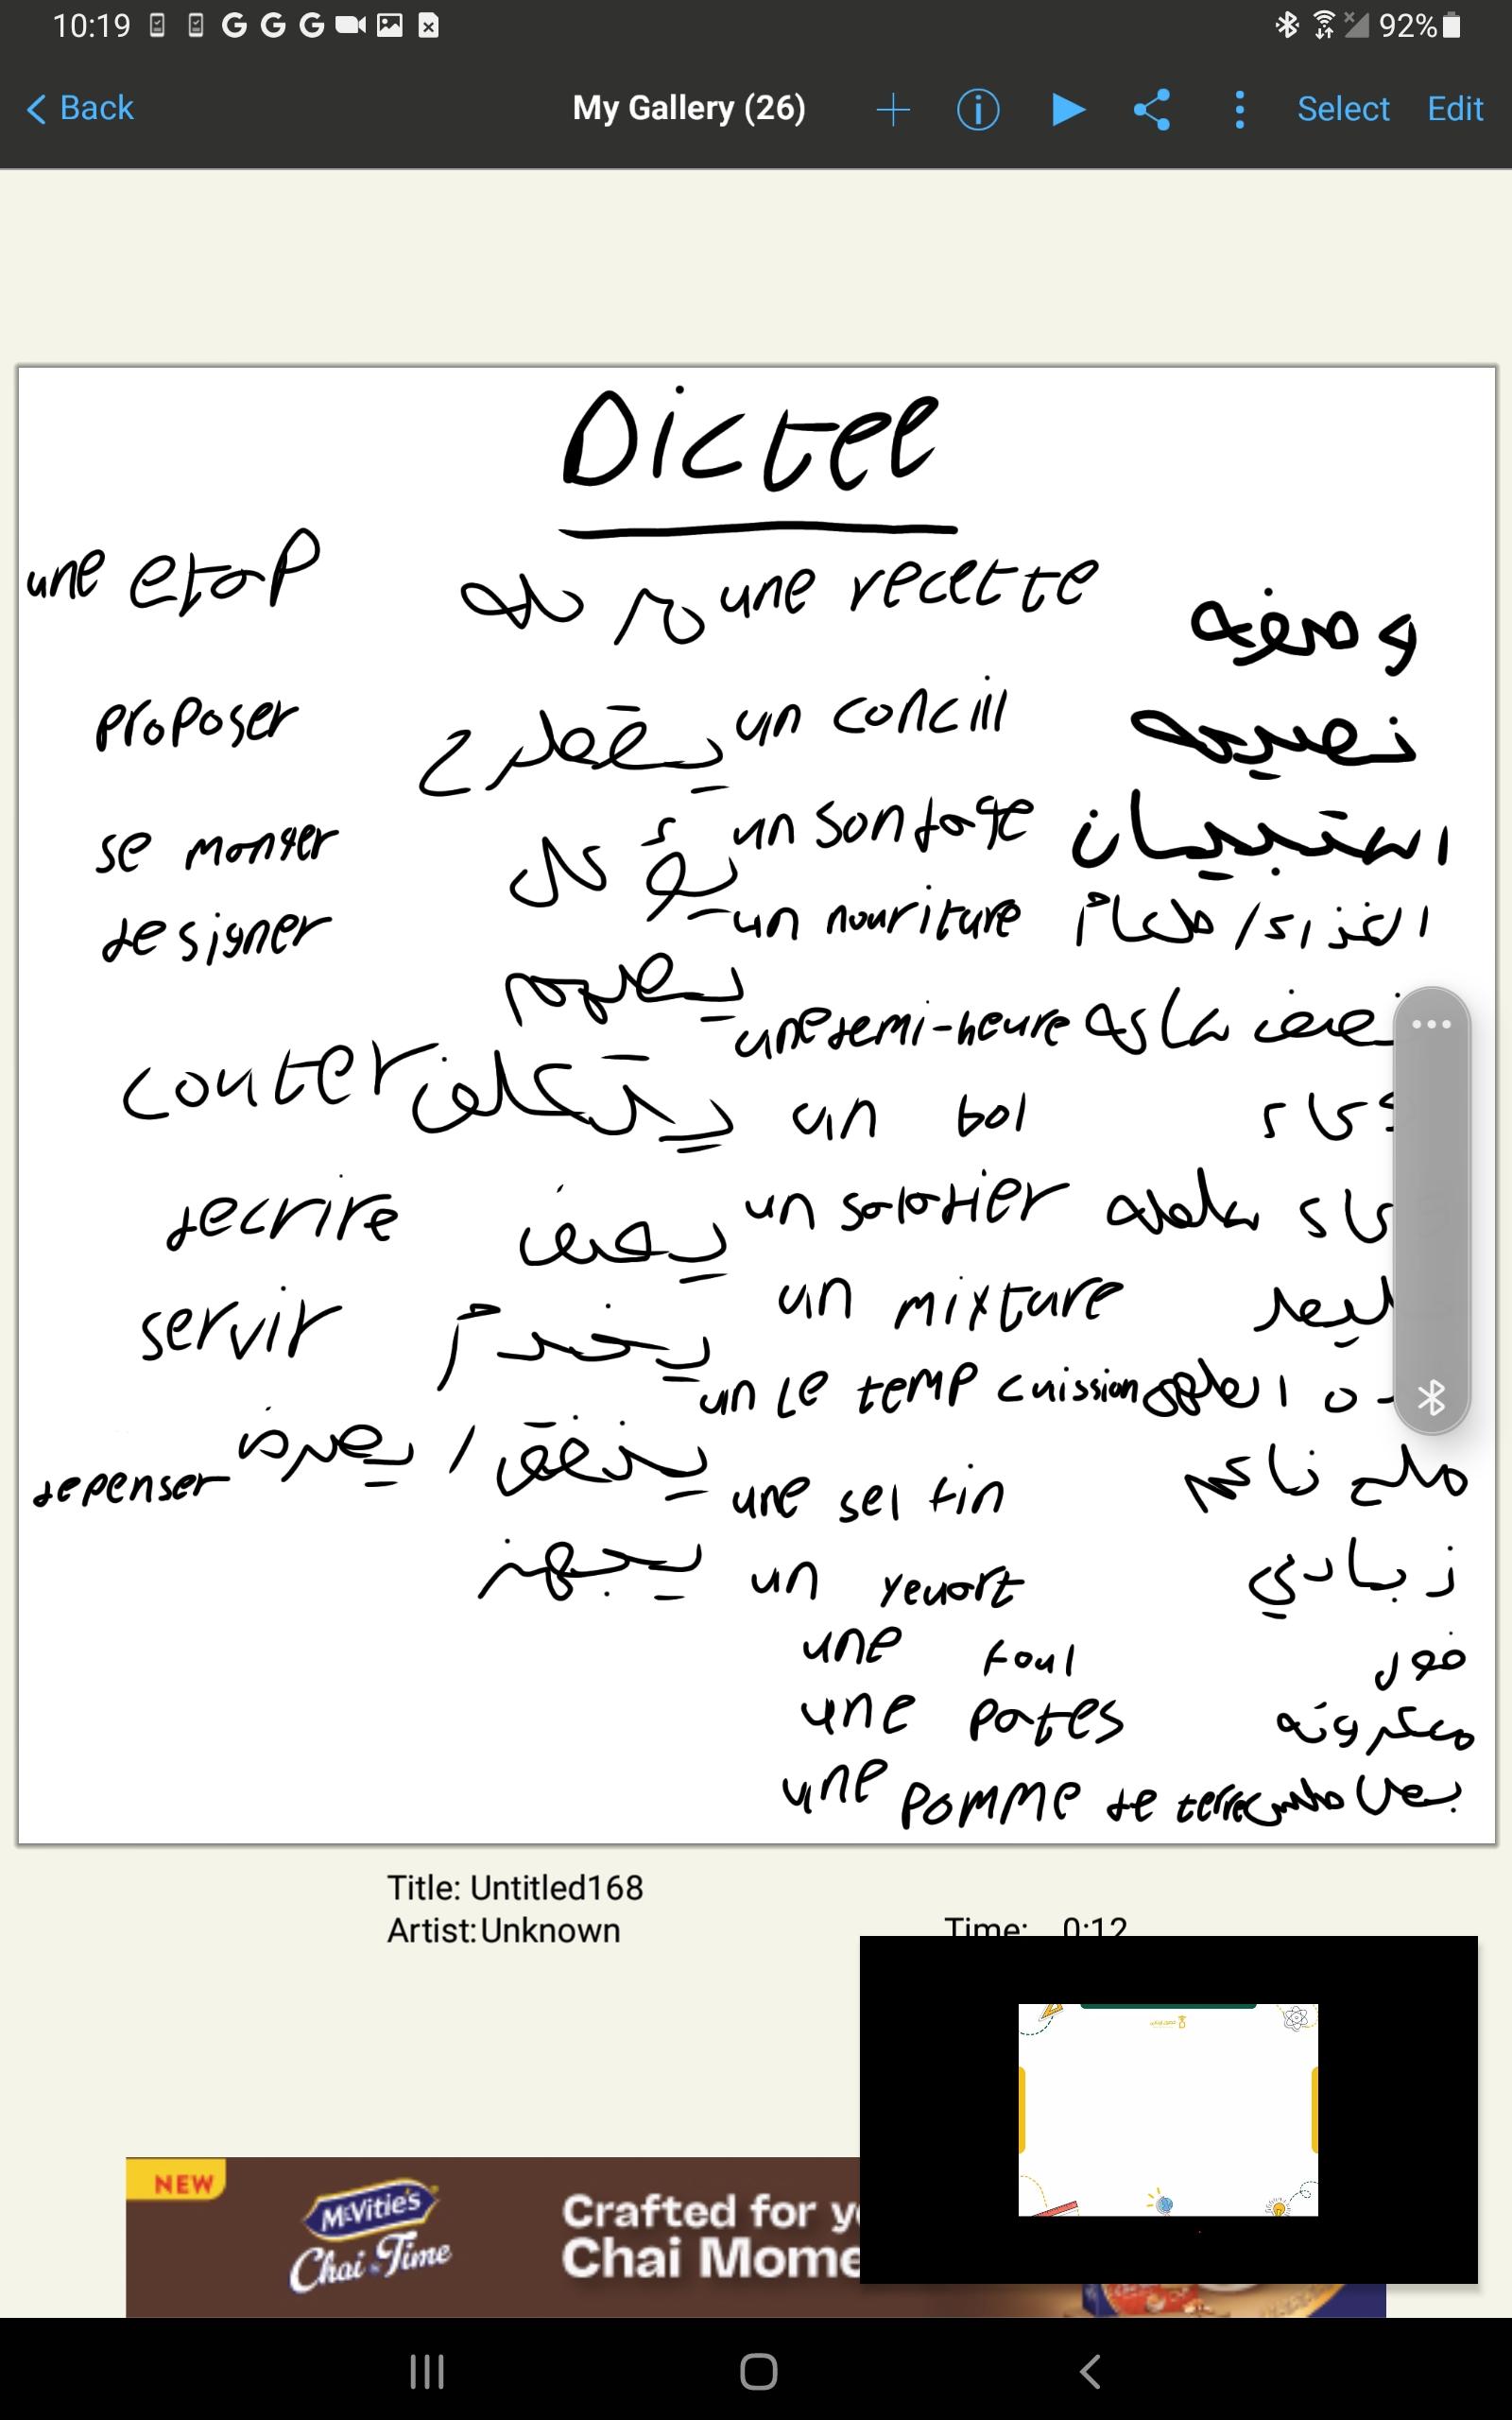 10:19 G G G 92%
Back My Gallery (26) Select Edit
Dictee
une etap مرحله une recette وصفه
proposer يقترح un concill نصيحه
se manger يؤكل un sondage استبيان
designer un nouriture الغذاء/طعام
une demi-heure نصف ساعه
couter يتكلف un bol
decrire يصف un saladier سلطه
servir يخدم un mixture
un le temp cuission الطهي
depenser ينفق/يصرف une sel fin ملح ناعم
يجهز un yeuort زبادي
une foul فول
une pates معكرونه
une pomme de terre بطاطس
Title: Untitled168
Artist: Unknown Time: 0:12
NEW
McVitie's
Chai Time
Crafted for y
Chai Mome